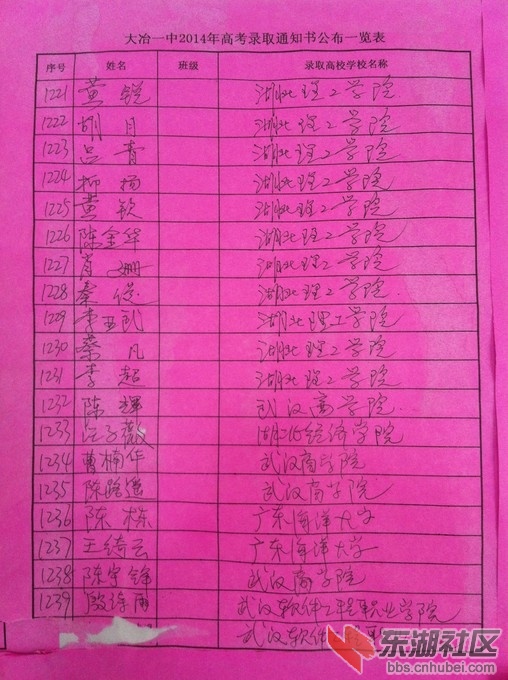 大冶一中2014年高考录取通知书公布一览表
序号 姓名 班级 录取高校学校名称
1221 黄锐 湖北理工学院
1222 胡月 湖北理工学院
1223 吕青 湖北理工学院
1224 柳扬 湖北理工学院
1225 黄钦 湖北理工学院
1226 陈金华 湖北理工学院
1227 肖姗 湖北理工学院
1228 秦 湖北理工学院
1229 李 湖北理工学院
1230 蔡凡 湖北理工学院
1231 李超 湖北理工学院
1232 陈辉 武汉商学院
1233 子薇 湖北经济学院
1234 曹楠华 武汉商学院
1235 陈路遥 武汉商学院
1236 陈栋 广东海洋大学
1237 王绮云 广东海洋大学
1238 陈宇锋 武汉商学院
1239 殷 雨 武汉软件工程职业学院
武汉软件
东湖社区
bbs.cnhubei.com